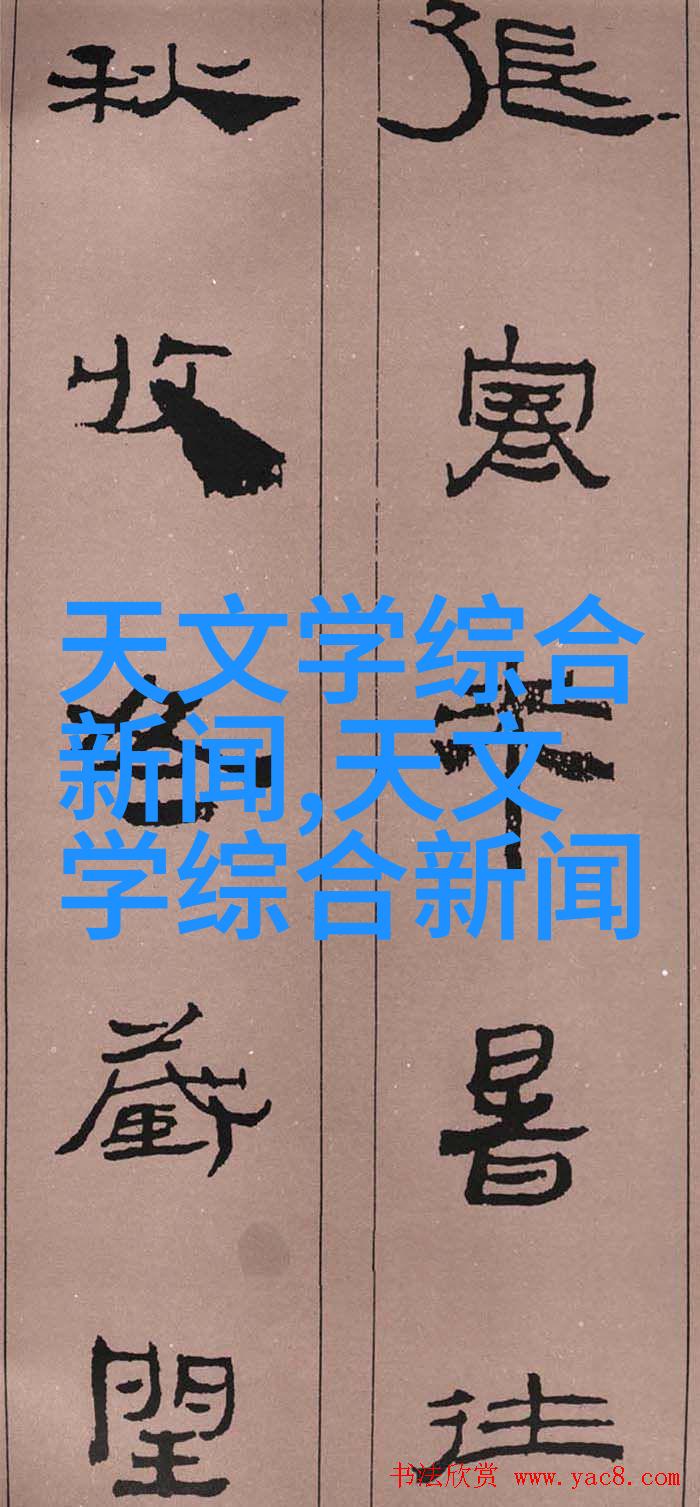 張寒来暑往
秋收冬藏閏
天文学综合
新闻,天文
学综合新闻
书法欣赏 www.yac8.com